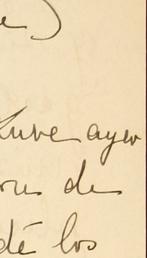 e)
tuve ayer
de
dé los